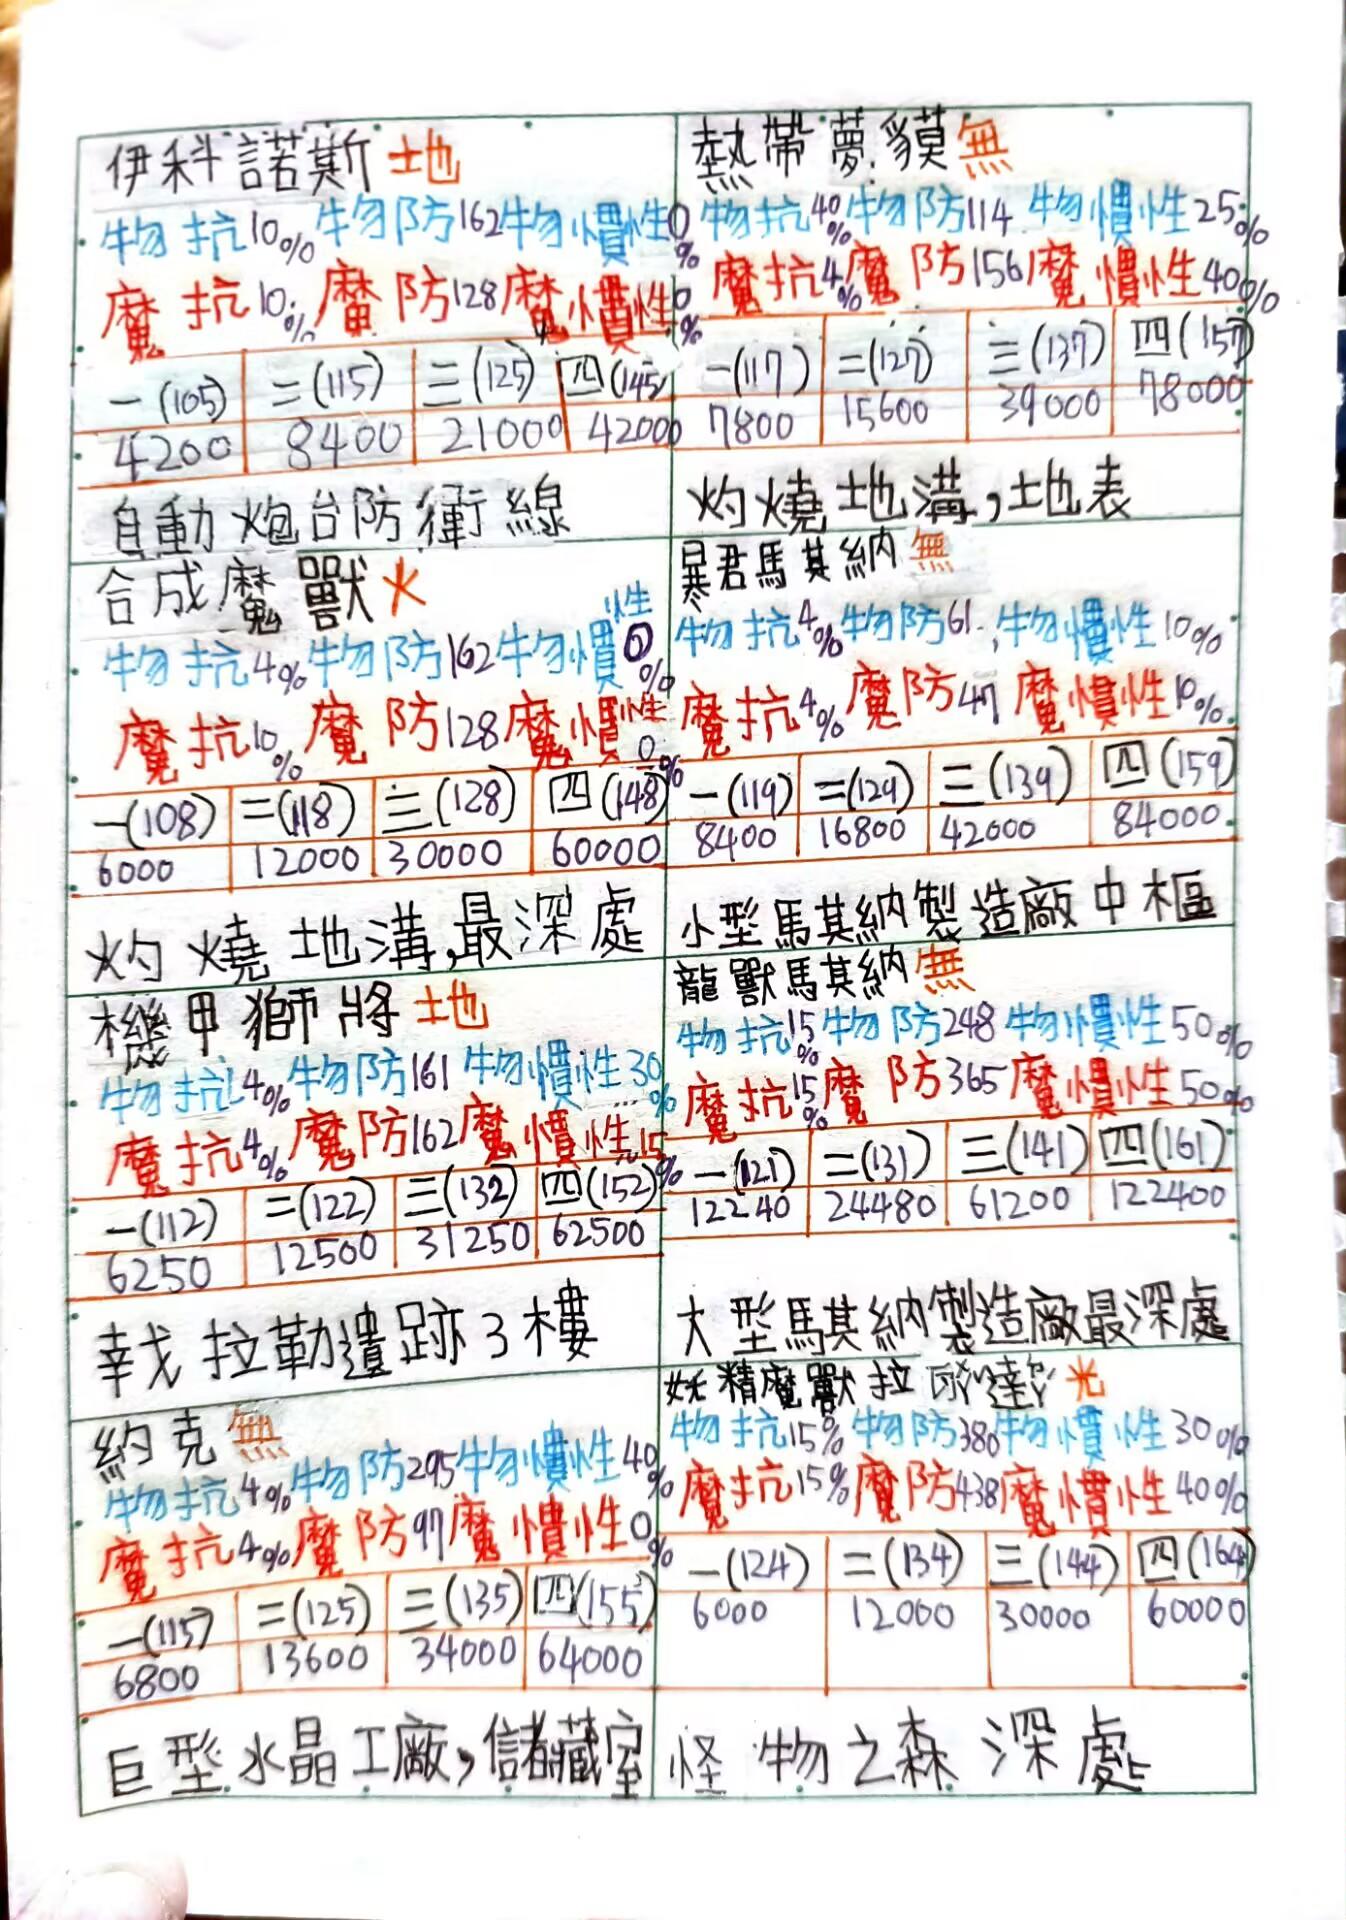 伊科諾斯 地
物抗10% 物防162 物慣性0%
魔抗10% 魔防128 魔慣性0%
一(105) 二(115) 三(125) 四(145)
4200 8400 21000 42000
自動炮台防衛線
熱帶夢貘 無
物抗40% 物防114 物慣性25%
魔抗4% 魔防156 魔慣性40%
一(117) 二(127) 三(137) 四(157)
7800 15600 39000 78000
灼燒地溝,地表
合成魔獸 火
物抗4% 物防162 物慣性0%
魔抗10% 魔防128 魔慣性0%
一(108) 二(118) 三(128) 四(148)
6000 12000 30000 60000
灼燒地溝,最深處
暴君馬其納 無
物抗4% 物防61 物慣性10%
魔抗4% 魔防47 魔慣性10%
一(119) 二(129) 三(139) 四(159)
8400 16800 42000 84000
小型馬其納製造廠中樞
機甲獅將 地
物抗4% 物防161 物慣性30%
魔抗4% 魔防162 魔慣性15%
一(112) 二(122) 三(132) 四(152)
6250 12500 31250 62500
拉勒遺跡3樓
龍獸馬其納 無
物抗15% 物防248 物慣性50%
魔抗15% 魔防365 魔慣性50%
一(121) 二(131) 三(141) 四(161)
12240 24480 61200 122400
大型馬其納製造廠最深處
約克 無
物抗4% 物防295 物慣性40%
魔抗4% 魔防97 魔慣性0%
一(115) 二(125) 三(135) 四(155)
6800 13600 34000 64000
巨型水晶工廠,儲藏室
妖精魔獸拉 達 光
物抗15% 物防380 物慣性30%
魔抗15% 魔防438 魔慣性40%
一(124) 二(134) 三(144) 四(164)
6000 12000 30000 60000
怪物之森深處